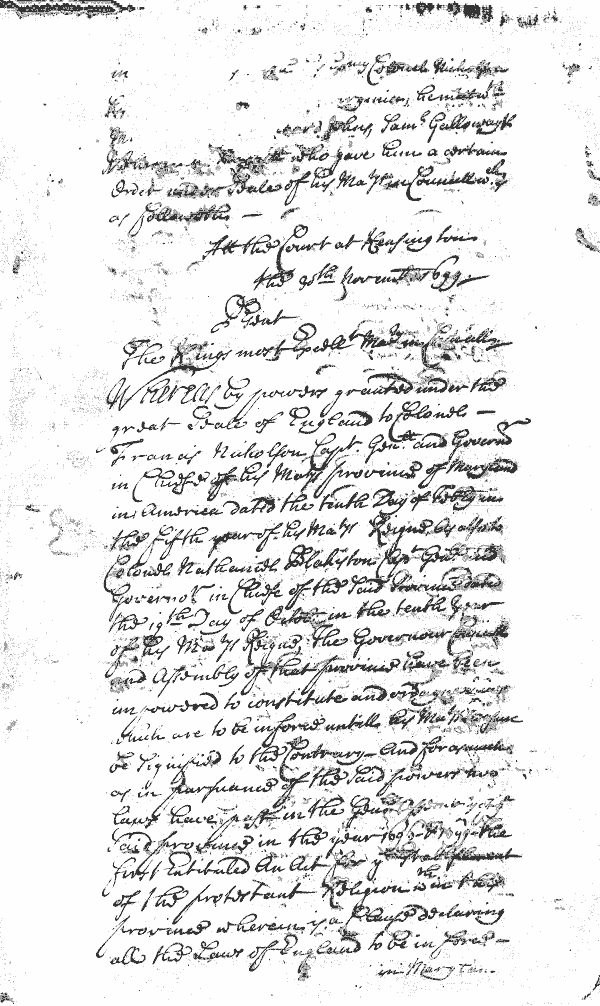 in Colonel Nicholson
Johns, Saml Galloway &
who gave him a certain
Order under Seale of his Matys in Councill wch
as followeth —
Att the Court at Kensington
the 30th Novemr 1699
Prsent
The Kings most Excellt Maty in Councill
Whereas by powers granted under the
great Seale of England to Colonel —
Francis Nicholson Capt. Genll and Governr
in Cheife of his Matys Province of Maryland
in America dated the tenth Day of Febry in
the fifth year of his Matys Reigne, as also to
Colonel Nathaniel Blakiston Capt Genll and
Governor in Cheife of the said Province dated
the 19th Day of Octobr in the tenth Year
of his Matys Reigne, the Governour Councill
and Assembly of that province have been
impowered to constitute and
which are to be in force untill his Matys
be signified to the Contrary — And forasmuch
as in pursuance of the said powers two
laws have past in the Genll of ye
said province in the year 1696 the
first Entituled An Act for ye Establishment
of the protestant Religion within this
province wherein is a Clause declaring
all the Laws of England to be in force —
in Maryland